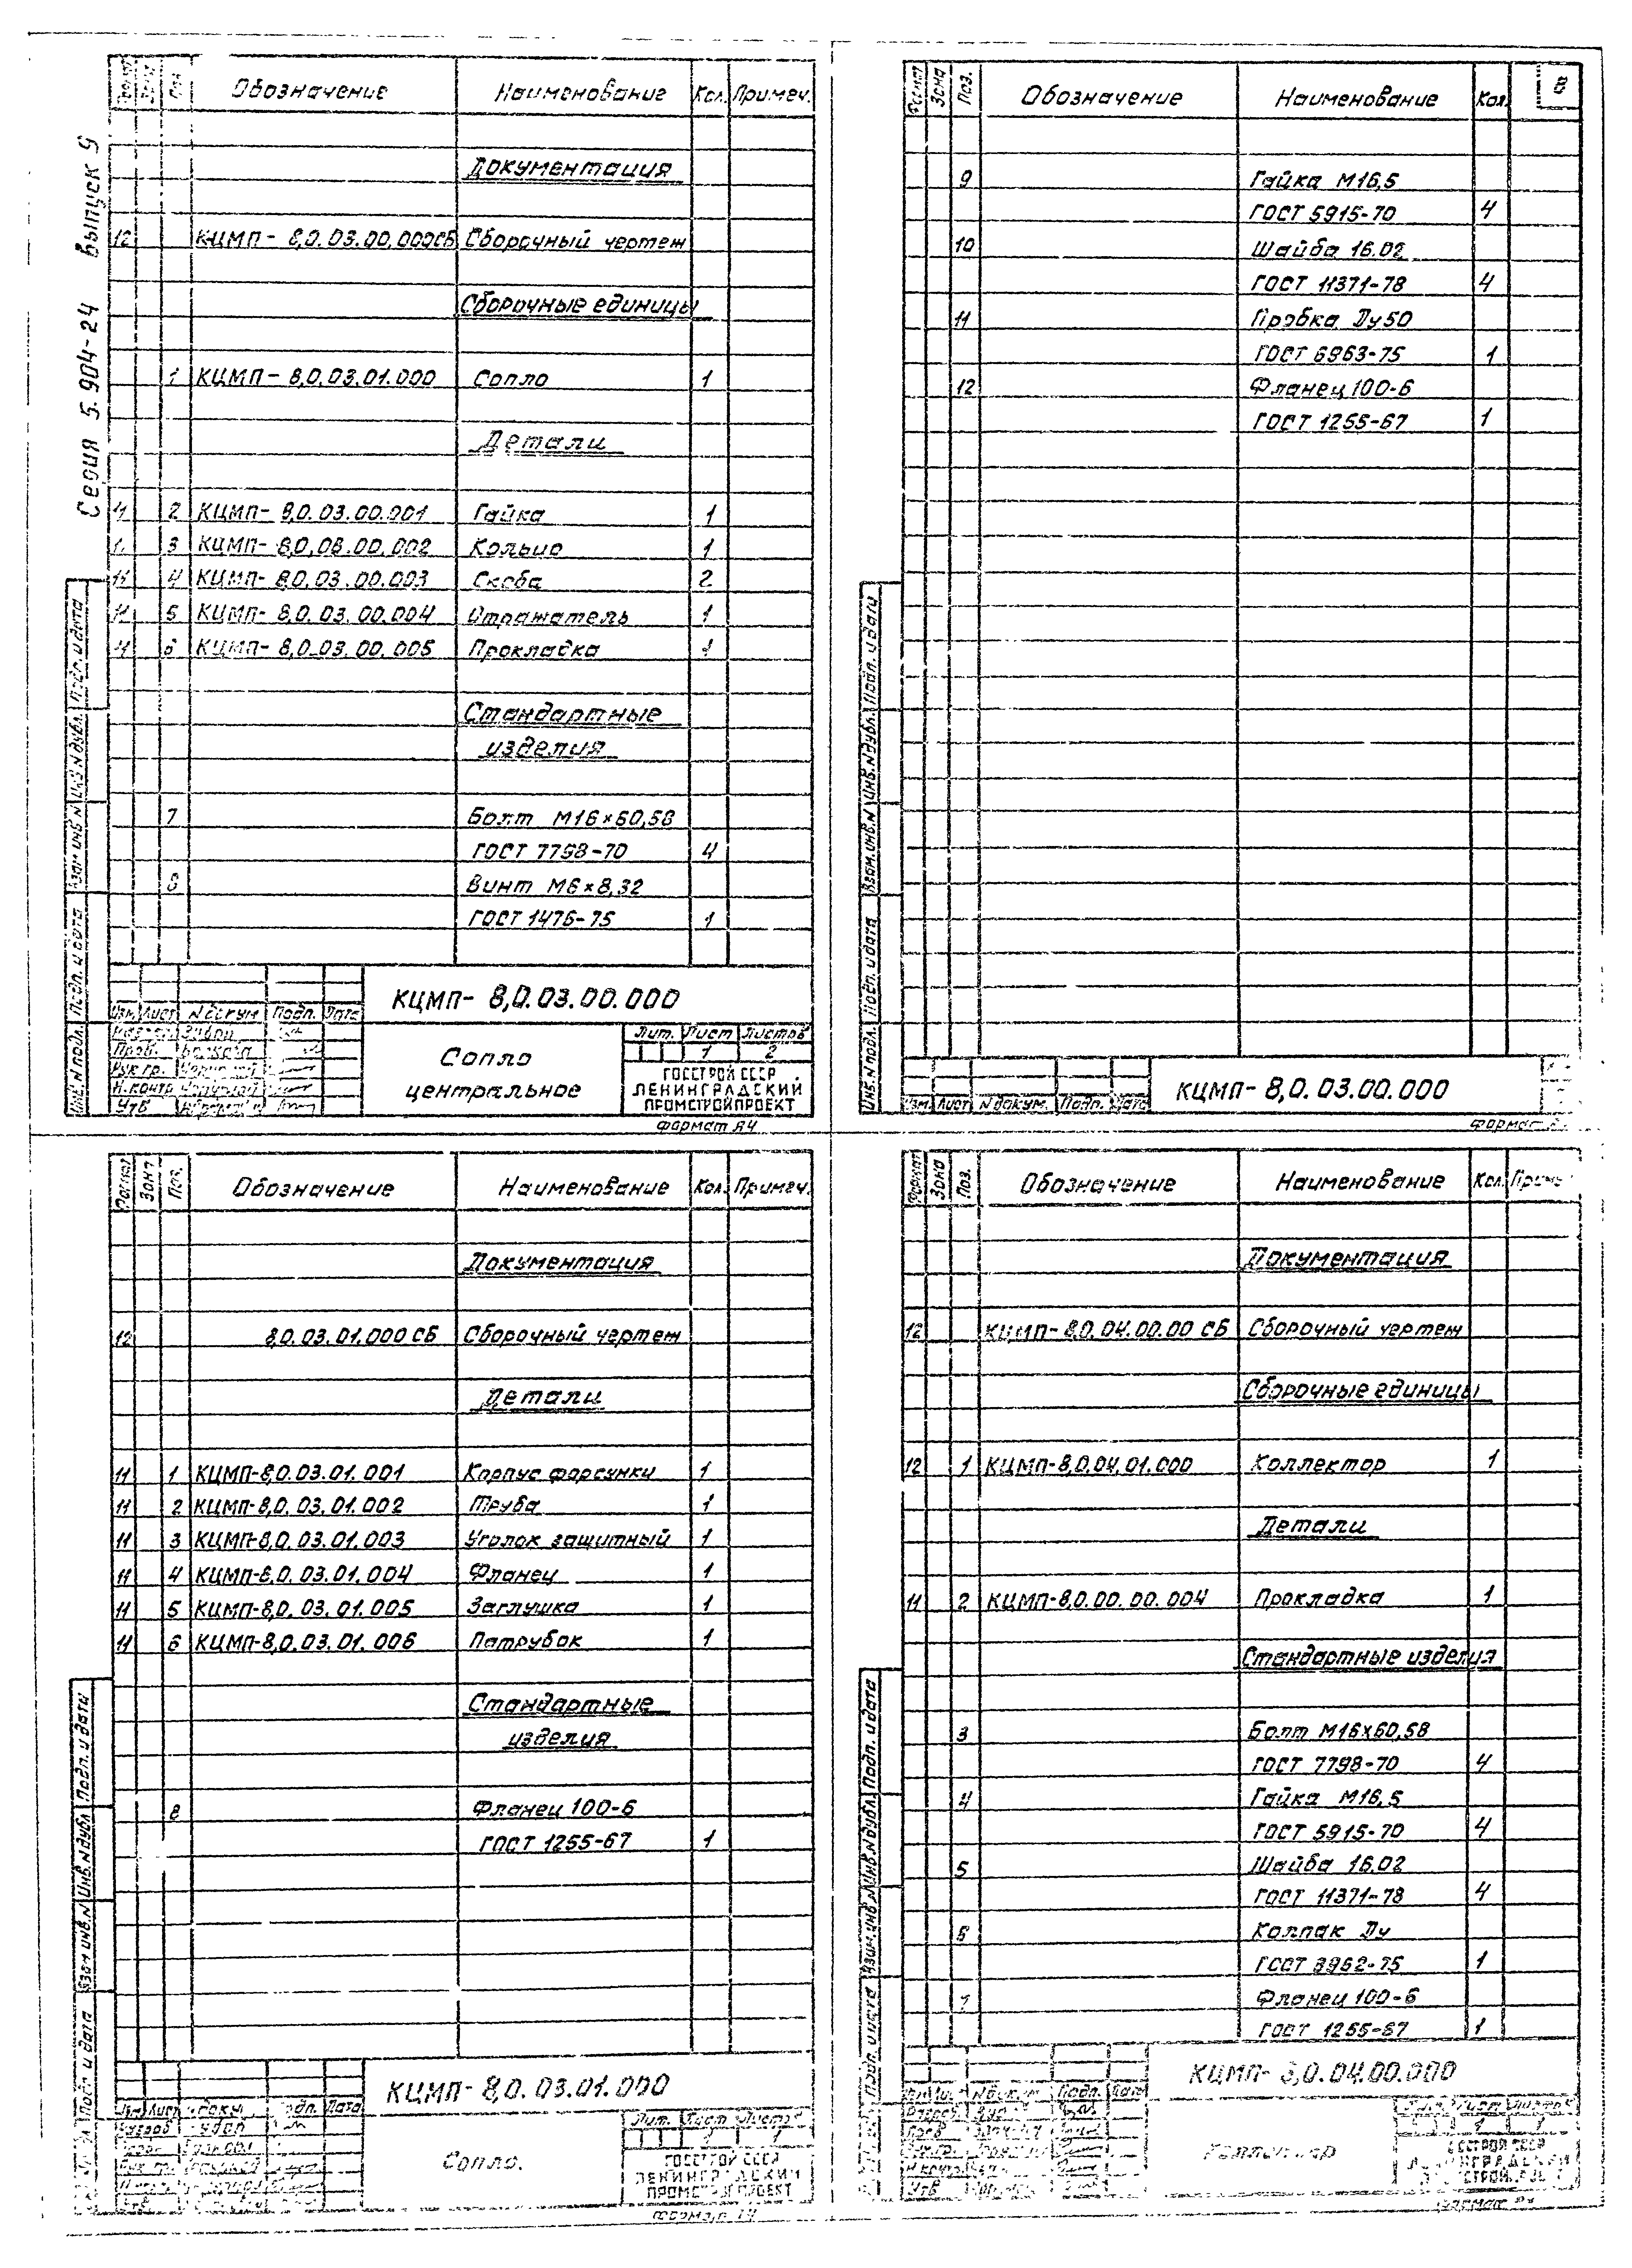 Серия 5.904-24 Выпуск 9
Поз. Обозначение Наименование Кол. Примеч.
Документация
12 КЦМП- 8,0.03.00.000СБ Сборочный чертеж
Сборочные единицы
1 КЦМП- 8,0.03.01.000 Сопло 1
Детали
11 2 КЦМП- 8,0.03.00.001 Гайка 1
3 КЦМП- 8,0,08.00.002 Кольцо 1
11 4 КЦМП- 8,0.03.00.003 Скоба 2
11 5 КЦМП- 8,0.03.00.004 Отражатель 1
11 6 КЦМП- 8,0.03.00.005 Прокладка 1
Стандартные
изделия
7 Болт М16×60,58
ГОСТ 7798-70 4
8 Винт М6×8,32
ГОСТ 1476-75 1
Инв.N подл. Подп. и дата Взам инв N Инв N дубл. Подп. и дата
КЦМП- 8,0.03.00.000
Изм. Лист N докум Подп. Дата
Пров.
Рук.гр.
Н.контр
Утв
Сопло
центральное
Лит. Лист Листов
1 2
ГОССТРОЙ СССР
ЛЕНИНГРАДСКИЙ
ПРОМСТРОЙПРОЕКТ
Формат А4
Формат Зона Поз. Обозначение Наименование Кол. 8
9 Гайка М16,5
ГОСТ 5915-70 4
10 Шайба 16.02
ГОСТ 11371-78 4
11 Пробка Ду50
ГОСТ 6963-75 1
12 Фланец 100-6
ГОСТ 1255-67 1
Инв.N подл. Подп. и дата Взам.инв.N Инв.N дубл. Подп. и дата
Изм. Лист N докум. Подп. Дата
КЦМП- 8,0.03.00.000
Формат
Формат Зона Поз. Обозначение Наименование Кол. Примеч.
Документация
12 8,0.03.01.000 СБ Сборочный чертеж
Детали
11 1 КЦМП-8,0.03.01.001 Корпус форсунки 1
11 2 КЦМП-8,0.03.01.002 Труба 1
11 3 КЦМП-8,0.03.01.003 Уголок защитный 1
11 4 КЦМП-8,0.03.01.004 Фланец 1
11 5 КЦМП-8,0.03.01.005 Заглушка 1
11 6 КЦМП-8,0.03.01.006 Патрубок 1
Стандартные
изделия
8 Фланец 100-6
ГОСТ 1255-67 1
Подп. и дата Взам инв.N Инв.N дубл Подп. и дата
КЦМП- 8,0.03.01.000
Изм Лист Подп. Дата
Утв
Сопло.
Лит. Лист Листов
ГОССТРОЙ СССР
ЛЕНИНГРАДСКИЙ
ПРОМСТРОЙПРОЕКТ
Формат Зона Поз. Обозначение Наименование Кол.
Документация
12 КЦМП- 8,0.04.00.00 СБ Сборочный чертеж
Сборочные единицы
12 1 КЦМП-8,0.04.01.000 Коллектор 1
Детали
11 2 КЦМП-8,0.00.00.004 Прокладка 1
Стандартные изделия
3 Болт М16×60,58
ГОСТ 7798-70 4
4 Гайка М16,5
ГОСТ 5915-70 4
5 Шайба 16.02
ГОСТ 11371-78 4
6 Колпак Ду
ГОСТ 8962-75 1
7 Фланец 100-6
ГОСТ 1255-67 1
Подп. и дата Взам.инв.N Инв.N дубл. Подп. и дата
КЦМП- 8,0.04.00.000
Подп.
Утв